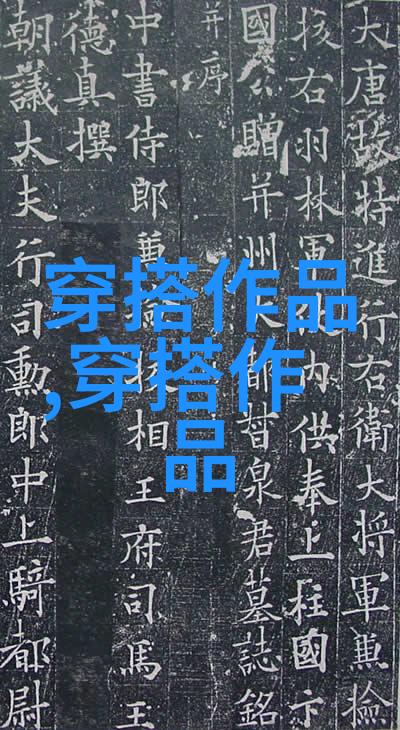 大唐故特進行右衛大將軍兼檢
校右羽林軍仗內供奉上柱國卞
國公贈并州大都督泉君墓誌銘
并序
中書侍郎兼檢校相王府司馬王
德真撰
朝議大夫行司勳郎中上騎都尉
穿搭作品
,穿搭作
品